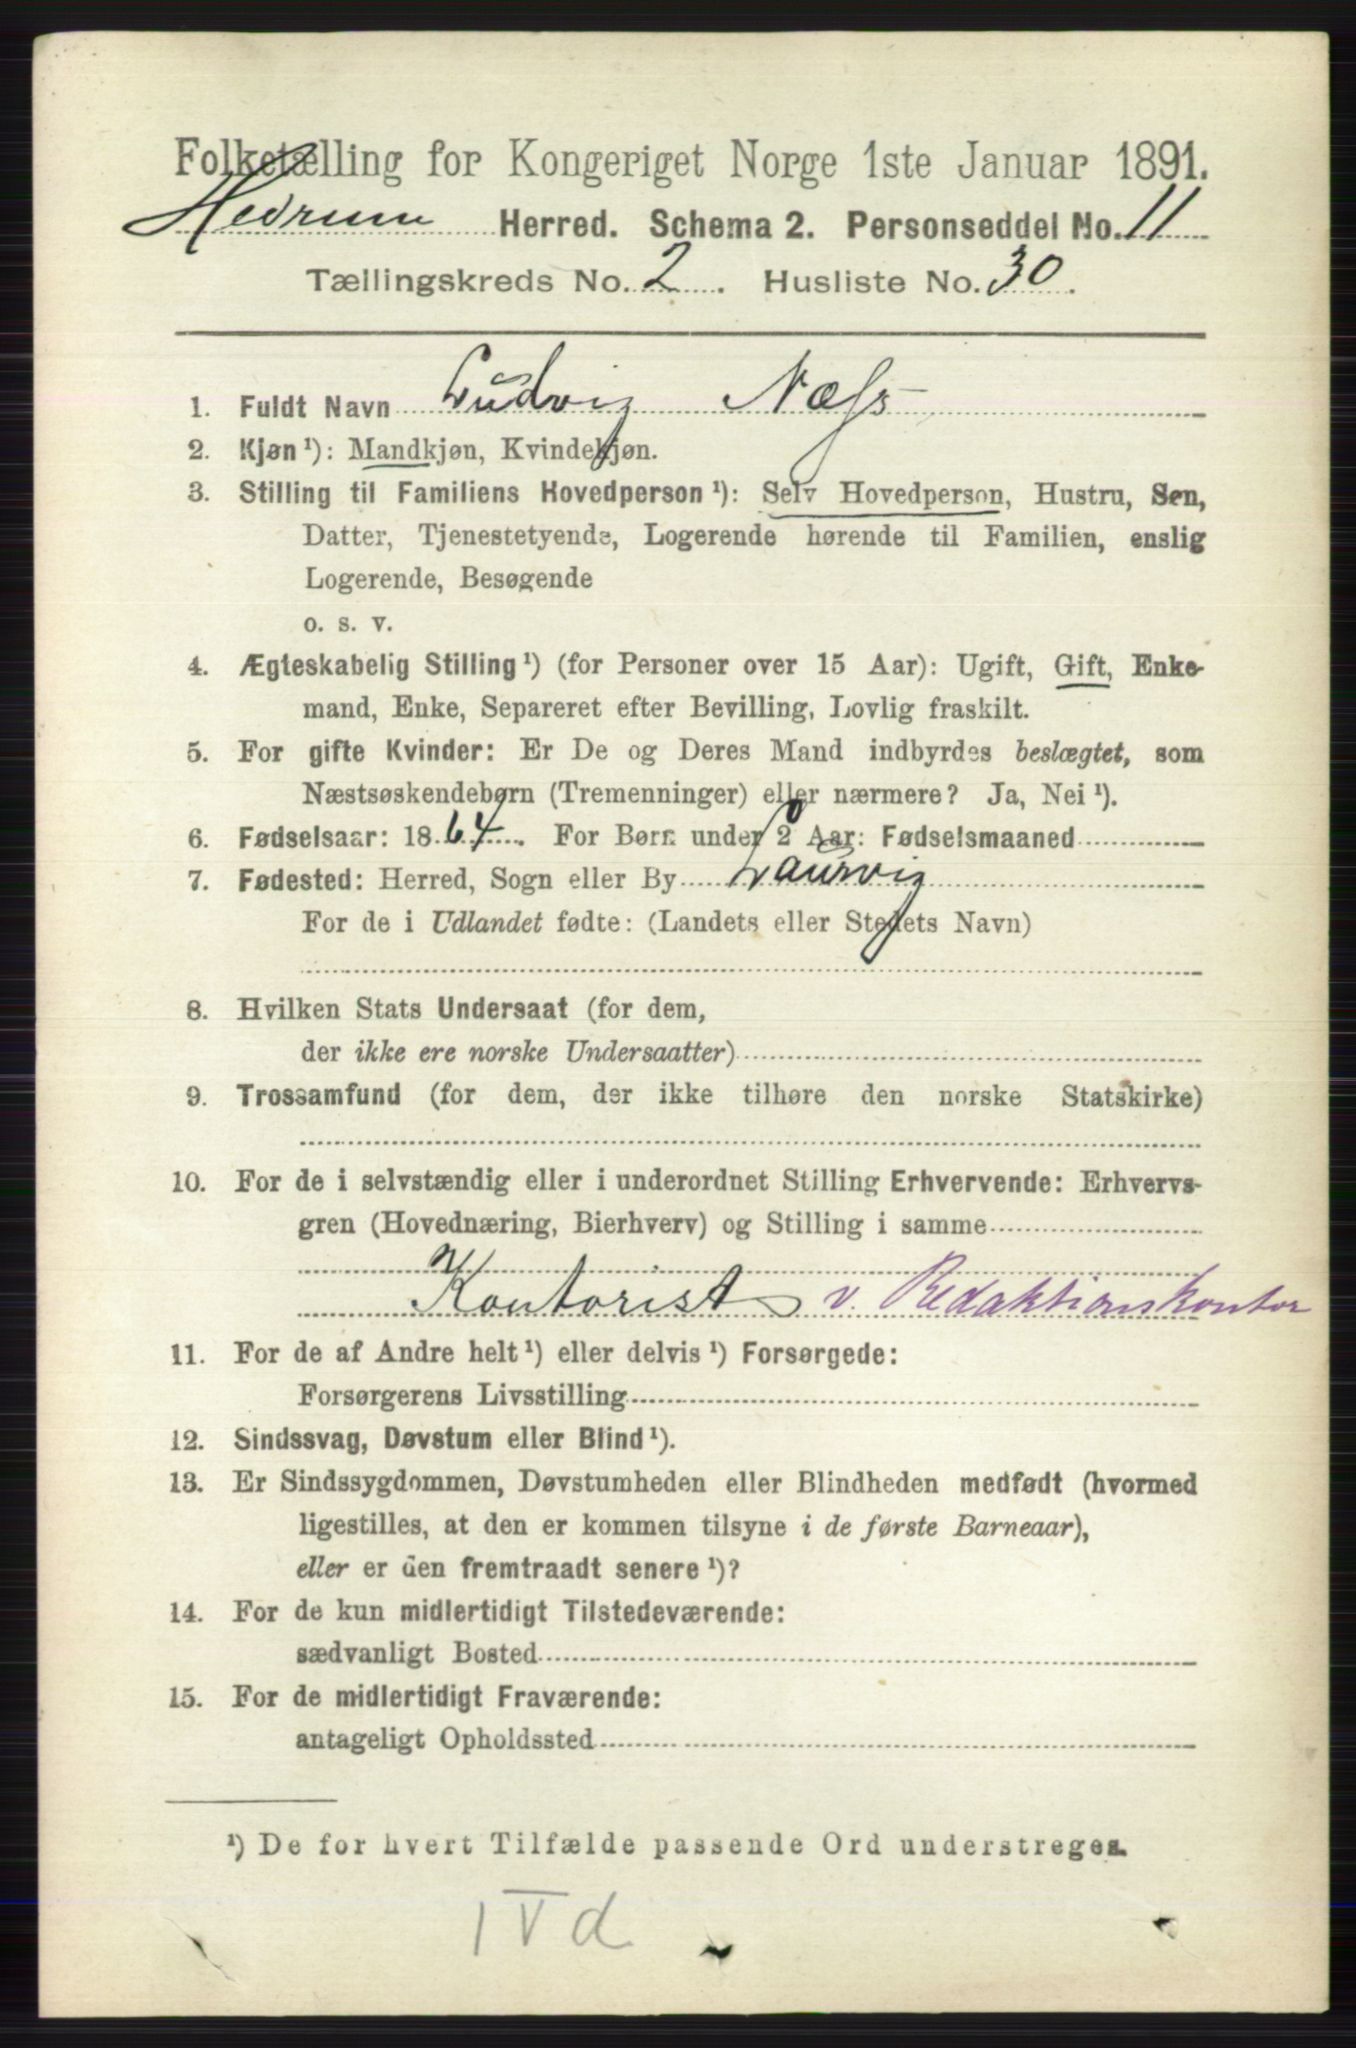 Folketælling for Kongeriget Norge 1ste Januar 1891.
Hedrum Herred. Schema 2. Personseddel No. 11
Tællingskreds No. 2. Husliste No. 30.
1. Fuldt Navn Ludvig Næss
2. Kjøn ¹): Mandkjøn, Kvindekjøn.
3. Stilling til Familiens Hovedperson ¹): Selv Hovedperson, Hustru, Søn,
Datter, Tjenestetyende, Logerende hørende til Familien, enslig
Logerende, Besøgende
o. s. v.
4. Ægteskabelig Stilling ¹) (for Personer over 15 Aar): Ugift, Gift, Enke-
mand, Enke, Separeret efter Bevilling, Lovlig fraskilt.
5. For gifte Kvinder: Er De og Deres Mand indbyrdes beslægtet, som
Næstsøskendebørn (Tremenninger) eller nærmere? Ja, Nei ¹).
6. Fødselsaar: 1864. For Børn under 2 Aar: Fødselsmaaned
7. Fødested: Herred, Sogn eller By Laurvig
For de i Udlandet fødte: (Landets eller Stedets Navn)
8. Hvilken Stats Undersaat (for dem,
der ikke ere norske Undersaatter)
9. Trossamfund (for dem, der ikke tilhøre den norske Statskirke)
10. For de i selvstændig eller i underordnet Stilling Erhvervende: Erhvervs-
gren (Hovednæring, Bierhverv) og Stilling i samme
Kontorist v. Redaktionskontor
11. For de af Andre helt ¹) eller delvis ¹) Forsørgede:
Forsørgerens Livsstilling
12. Sindssvag, Døvstum eller Blind ¹).
13. Er Sindssygdommen, Døvstumheden eller Blindheden medfødt (hvormed
ligestilles, at den er kommen tilsyne i de første Barneaar),
eller er den fremtraadt senere ¹)?
14. For de kun midlertidigt Tilstedeværende:
sædvanligt Bosted
15. For de midlertidigt Fraværende:
antageligt Opholdssted
¹) De for hvert Tilfælde passende Ord understreges.
IVd